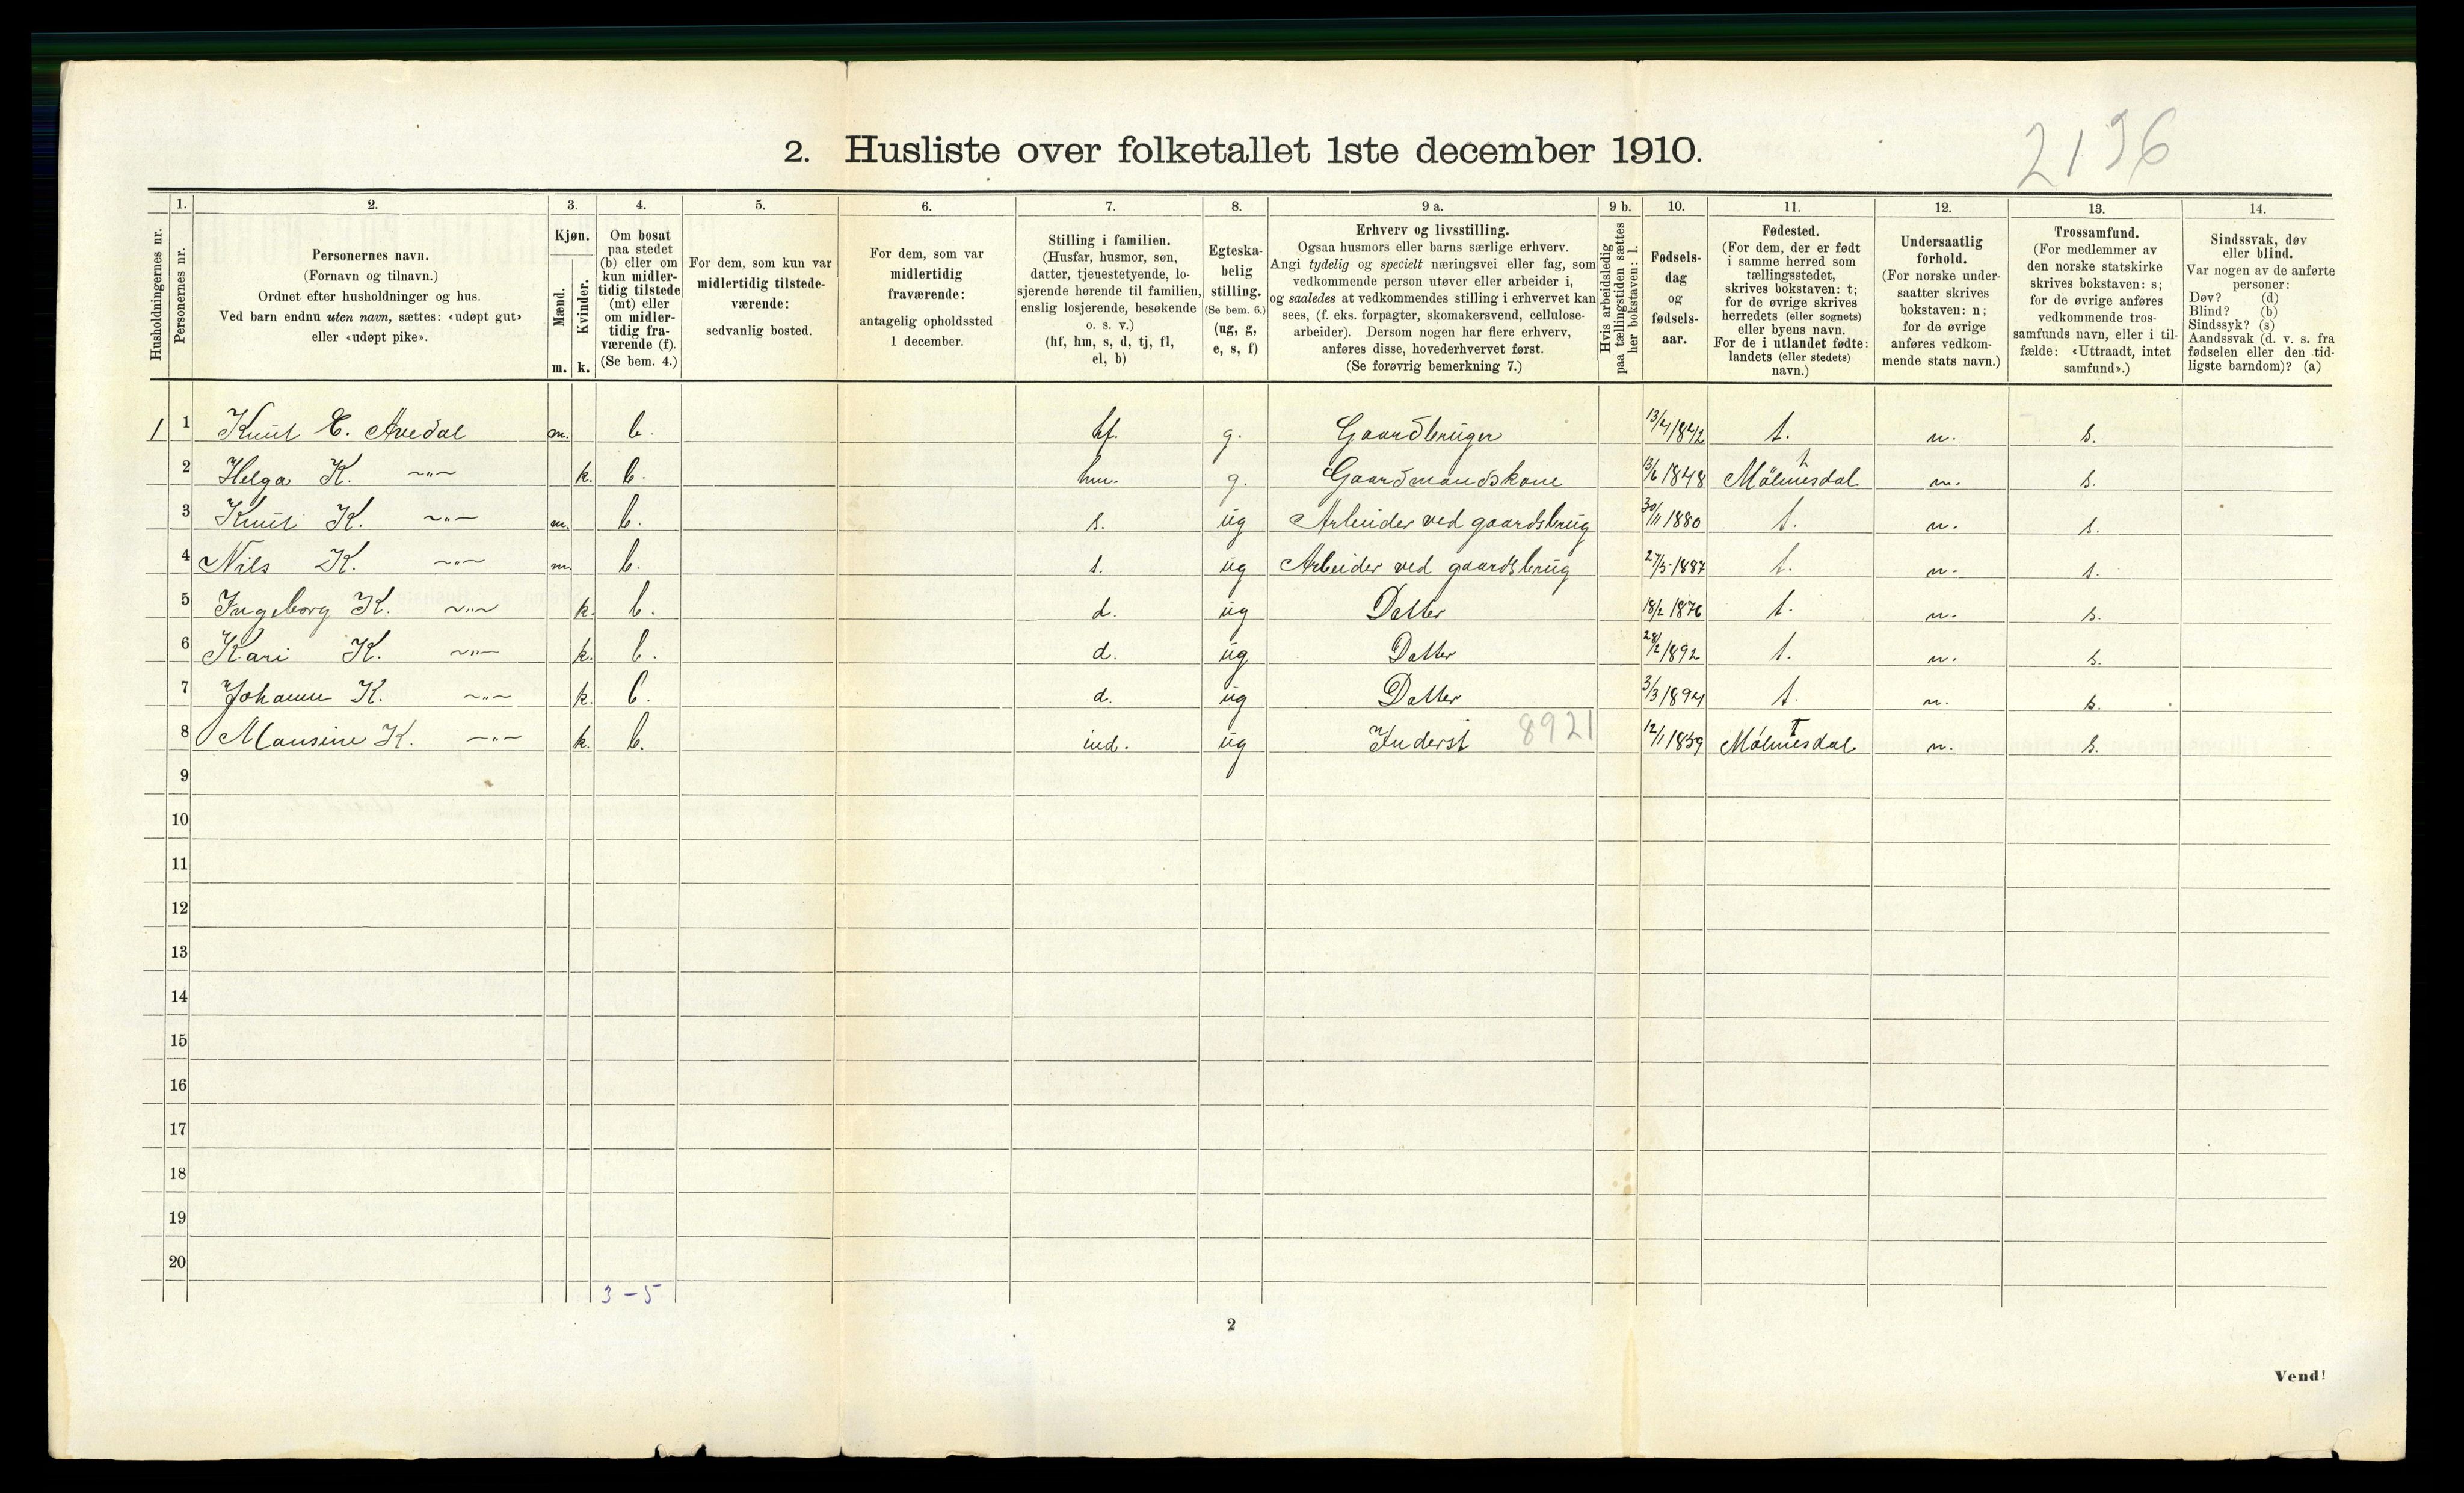 2136
2. Husliste over folketallet 1ste december 1910.
Husholdningernes nr.
1. Personernes nr.
2. Personernes navn. (Fornavn og tilnavn.) Ordnet efter husholdninger og hus. Ved barn endnu uten navn, sættes: «udøpt gut» eller «udøpt pike».
3. Kjøn. Mænd. m. Kvinder. k.
4. Om bosat paa stedet (b) eller om kun midlertidig tilstede (mt) eller om midlertidig fraværende (f). (Se bem. 4.)
5. For dem, som kun var midlertidig tilstedeværende: sedvanlig bosted.
6. For dem, som var midlertidig fraværende: antagelig opholdssted 1 december.
7. Stilling i familien. (Husfar, husmor, søn, datter, tjenestetyende, losjerende hørende til familien, enslig losjerende, besøkende o. s. v.) (hf, hm, s, d, tj, fl, el, b)
8. Egteskabelig stilling. (Se bem. 6.) (ug, g, e, s, f)
9 a. Erhverv og livsstilling. Ogsaa husmors eller barns særlige erhverv. Angi tydelig og specielt næringsvei eller fag, som vedkommende person utøver eller arbeider i, og saaledes at vedkommendes stilling i erhvervet kan sees, (f. eks. forpagter, skomakersvend, cellulosearbeider). Dersom nogen har flere erhverv, anføres disse, hovederhvervet først. (Se forøvrig bemerkning 7.)
9 b. Hvis arbeidsledig paa tællingstiden sættes her bokstaven: l.
10. Fødselsdag og fødselsaar.
11. Fødested. (For dem, der er født i samme herred som tællingsstedet, skrives bokstaven: t; for de øvrige skrives herredets (eller sognets) eller byens navn. For de i utlandet fødte: landets (eller stedets) navn.)
12. Undersaatlig forhold. (For norske undersaatter skrives bokstaven: n; for de øvrige anføres vedkommende stats navn.)
13. Trossamfund. (For medlemmer av den norske statskirke skrives bokstaven: s; for de øvrige anføres vedkommende trossamfunds navn, eller i tilfælde: «Uttraadt, intet samfund».)
14. Sindssvak, døv eller blind. Var nogen av de anførte personer: Døv? (d) Blind? (b) Sindssyk? (s) Aandssvak (d. v. s. fra fødselen eller den tidligste barndom)? (a)
1 1 Knut E. Avedal m. b. hf. g. Gaardbruger 13/4 1842 t. n. s.
2 Helga K. -„- k. b. hm. g. Gaardmandskone 13/6 1848 Mölmesdal t n. s.
3 Knut K. -„- m. b. s. ug Arbeider ved gaardsbrug 30/11 1880 t. n. s.
4 Nils K. -„- m. b. s. ug Arbeider ved gaardsbrug 27/5-1887 t. n. s.
5 Ingeborg K. -„- k. b. d. ug Datter 18/2 1876 t. n. s.
6 Kari K. -„- k. b. d. ug Datter 28/2 1892 t. n. s.
7 Johanne K. -„- k. b. d. ug Datter 3/3 1894 t. n. s.
8 Mansine K. -„- k. b. ind. ug Inderst 8921 12/1 1859 Mölmesdal T n. s.
9
10
11
12
13
14
15
16
17
18
19
20
3-5
2
Vend!